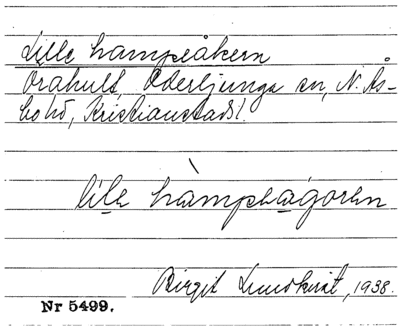 Lille hampeåkern
Örahult, Oderljunga sn, N. Ås-
bo hd, Kristianstads l.
lila hampeagoren
Birgit Lundkvist, 1938.
Nr 5499.